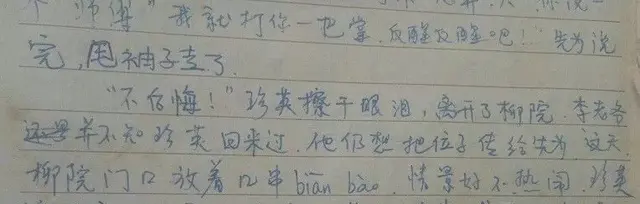 不"师傅"我就打你一巴掌.反醒反醒吧!"先为说
完,甩袖子走了.
"不后悔!"珍英擦干眼泪,离开了柳院.李老爷
并不知珍英回来过.他仍想把位子传给先为.这天
柳院门口放着几串biān bào.情景好不热闹.珍英